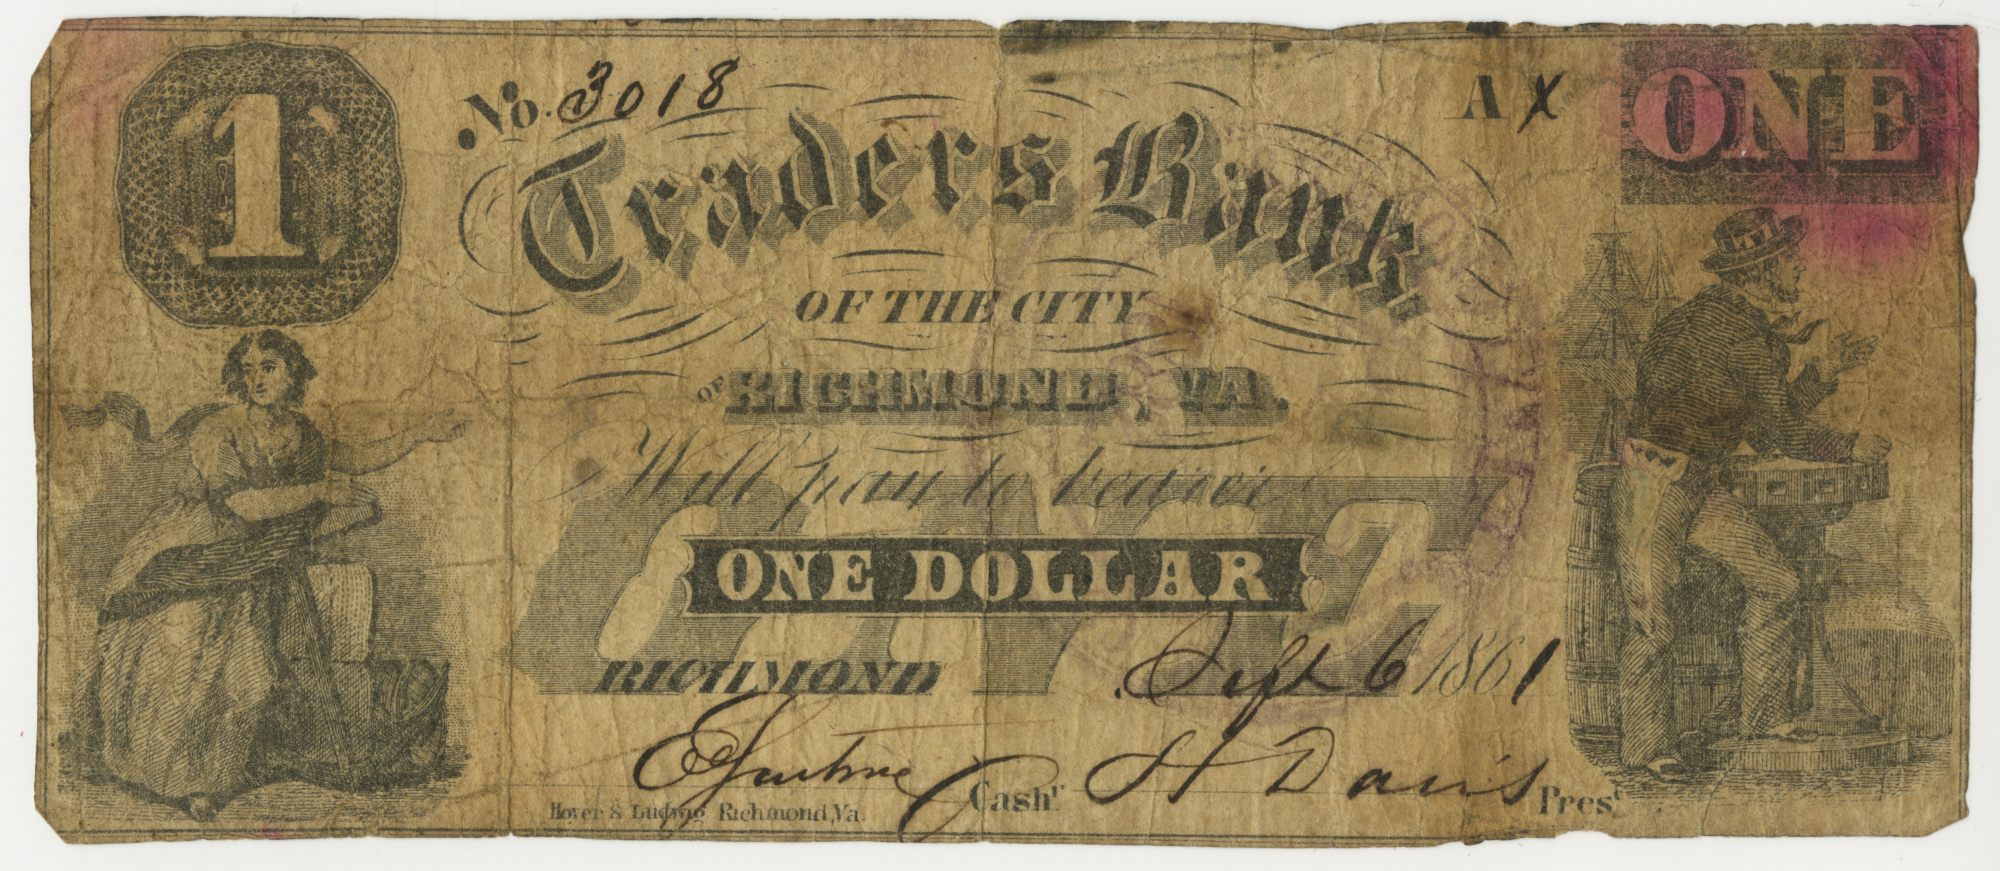 1
No. 3018
A X
ONE
Traders Bank
OF THE CITY
OF RICHMOND, VA.
Will pay to bearer
ONE
ONE DOLLAR
RICHMOND Sept 6 1861
Cashr H Davis Prest
Hoyer & Ludwig Richmond, Va.